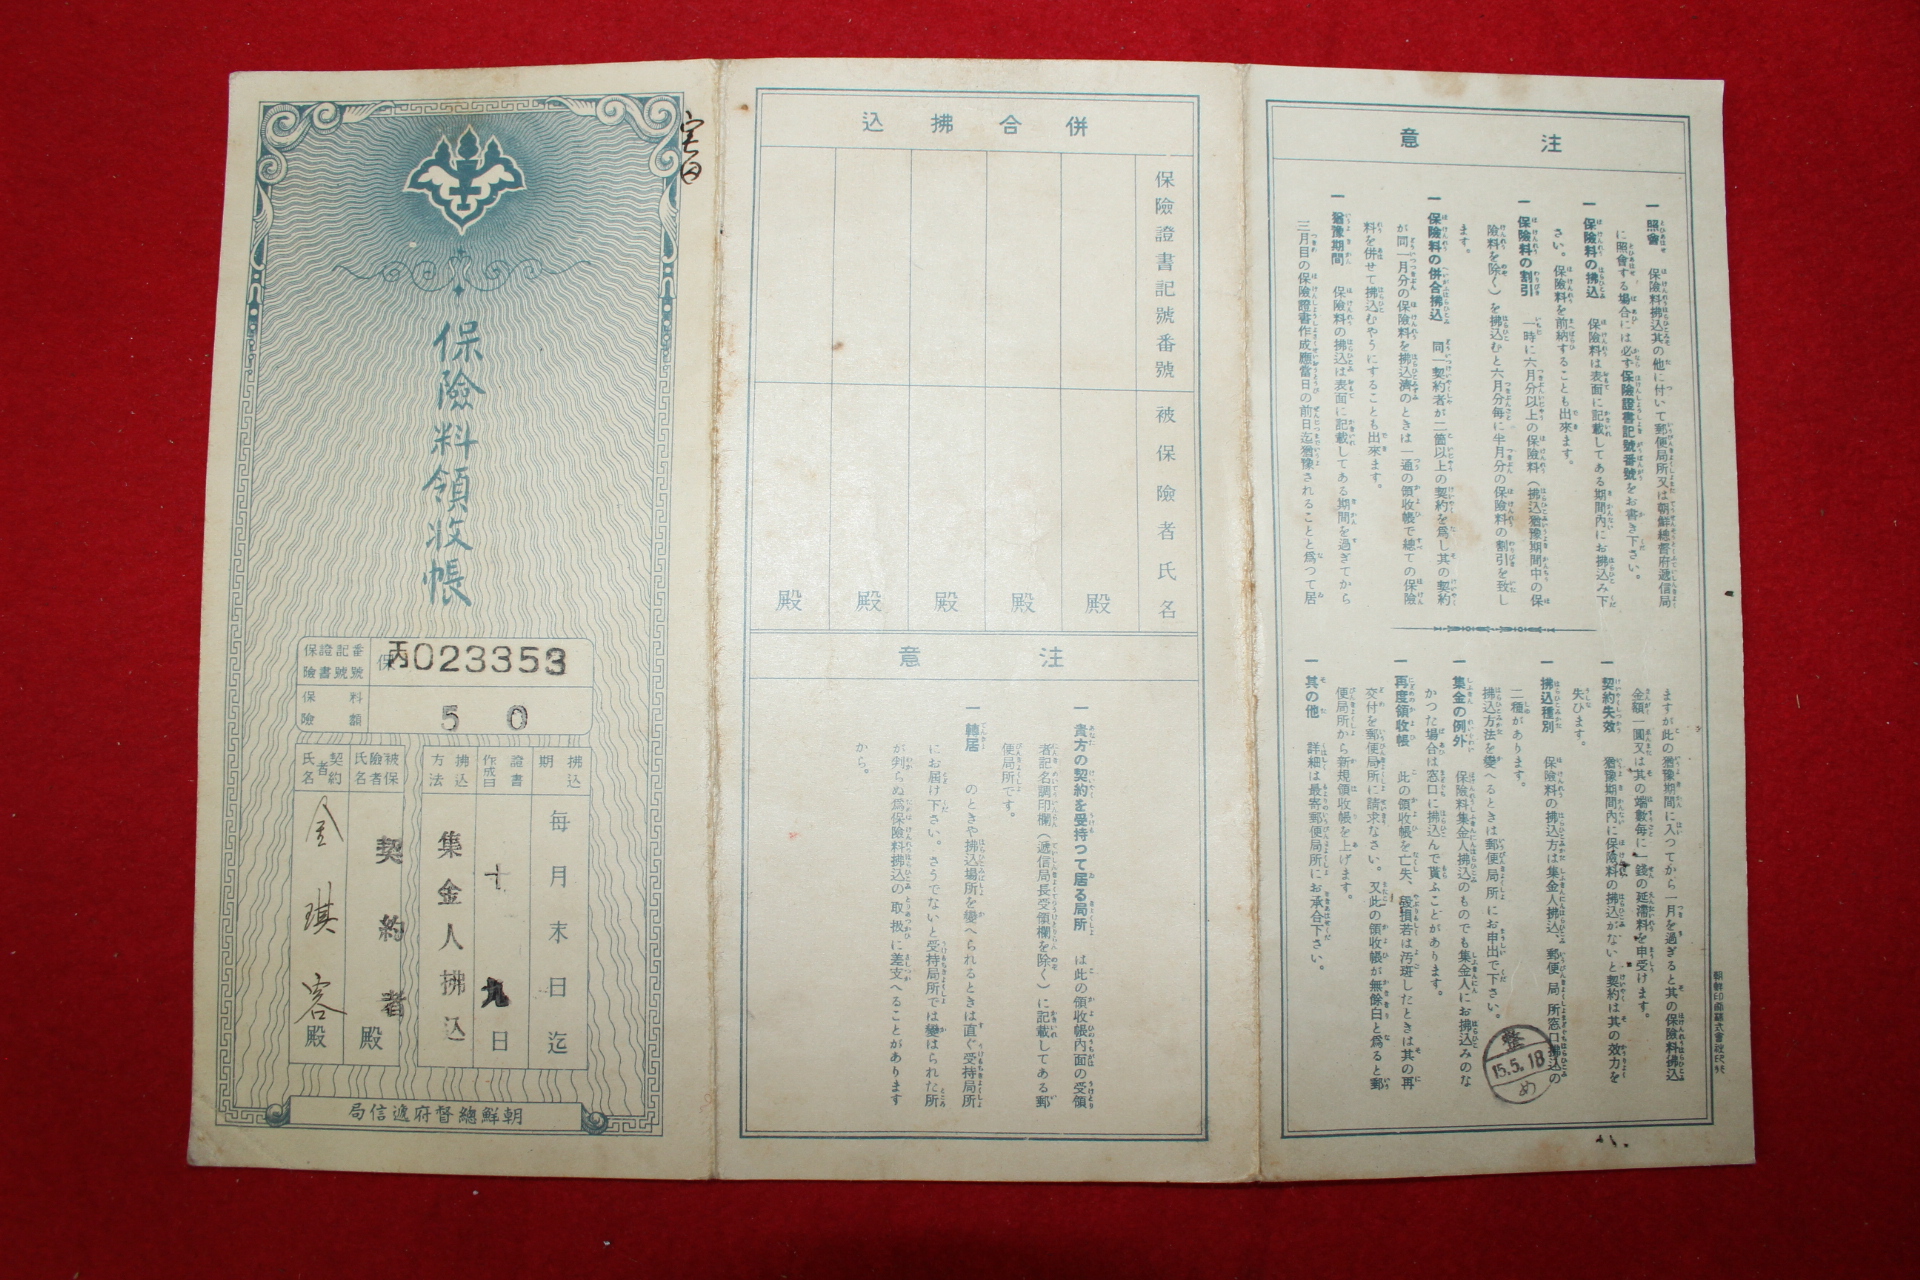 保險料領收帳
保險證書記號番號
保丙023353
保險料額
50
拂込期
每月末日迄
證書作成日
十九日
拂込方法
集金人拂込
被保險者氏名
契約者殿
契約者氏名
金琪容殿
朝鮮總督府遞信局
併合拂込
保險證書記號番號
被保險者氏名
殿
殿
殿
殿
殿
注意
一 貴方の契約を受持つて居る局所 は此の領收帳內面の受領
者記名調印欄(遞信局長受領欄を除く)に記載してある郵
便局所です。
一 轉居 のときや拂込場所を變へられるときは直ぐ受持局所
にお屆け下さい。さうでないと受持局所では變はられた所
が判らぬ爲保險料拂込の取扱に差支へることがあります
から。
注意
一 照會 保險料拂込其の他に付いて郵便局所又は朝鮮總督府遞信局
に照會する場合には必ず保險證書記號番號をお書き下さい。
一 保險料の拂込 保險料は表面に記載してある期間內にお拂込み下
さい。保險料を前納することも出來ます。
一 保險料の割引 一時に六月分以上の保險料(拂込猶豫期間中の保
險料を除く)を拂込むと六月分每に半月分の保險料の割引を致し
ます。
一 保險料の併合拂込 同一契約者が二箇以上の契約を爲し其の契約
が同一月分の保險料を拂込濟のときは一通の領收帳で總ての保險
料を併せて拂込むやうにすることも出來ます。
一 猶豫期間 保險料の拂込は表面に記載してある期間を過ぎてから
三月目の保險證書作成應當日の前日迄猶豫されることと爲つて居
ますが此の猶豫期間に入つてから一月を過ぎると其の保險料拂込
金額一圓又は其の端數每に一錢の延滯料を申受けます。
一 契約失效 猶豫期間內に保險料の拂込がないと契約は其の效力を
失ひます。
一 拂込種別 保險料の拂込方は集金人拂込、郵便局所窓口拂込の
二種があります。
拂込方法を變へるときは郵便局所にお申出で下さい。
一 集金の例外 保險料集金人拂込のものでも集金人にお拂込みのな
かつた場合は窓口に拂込んで貰ふことがあります。
一 再度領收帳 此の領收帳を亡失、毀損若は汚斑したときは其の再
交付を郵便局所に請求なさい。又此の領收帳が無餘白と爲ると郵
便局所から新規領收帳を上げます。
一 其の他 詳細は最寄郵便局所にお承合下さい。
整
15.5.18
め